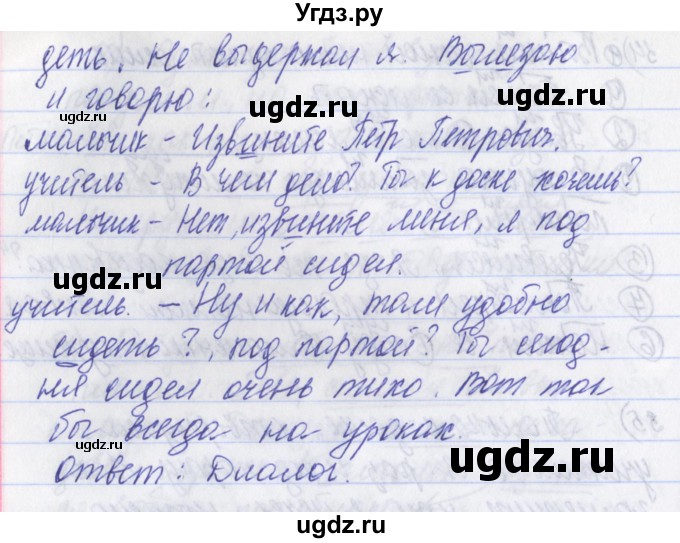 Угдз.ру
деть. Не выдержал я. Вылезаю
и говорю:
мальчик - Извините Пётр Петрович.
учитель - В чём дело? Ты к доске хочешь?
мальчик - Нет, извините меня, я под
партой сидел.
учитель. - Ну и как, там удобно
сидеть?, под партой? Ты сегод-
ня сидел очень тихо. Вот так
бы всегда на уроках.
Ответ: Диалог.
ugdz.ru
ugdz.ru
ugdz.ru
ugdz.ru
ugdz.ru
ugdz.ru
ugdz.ru
ugdz.ru